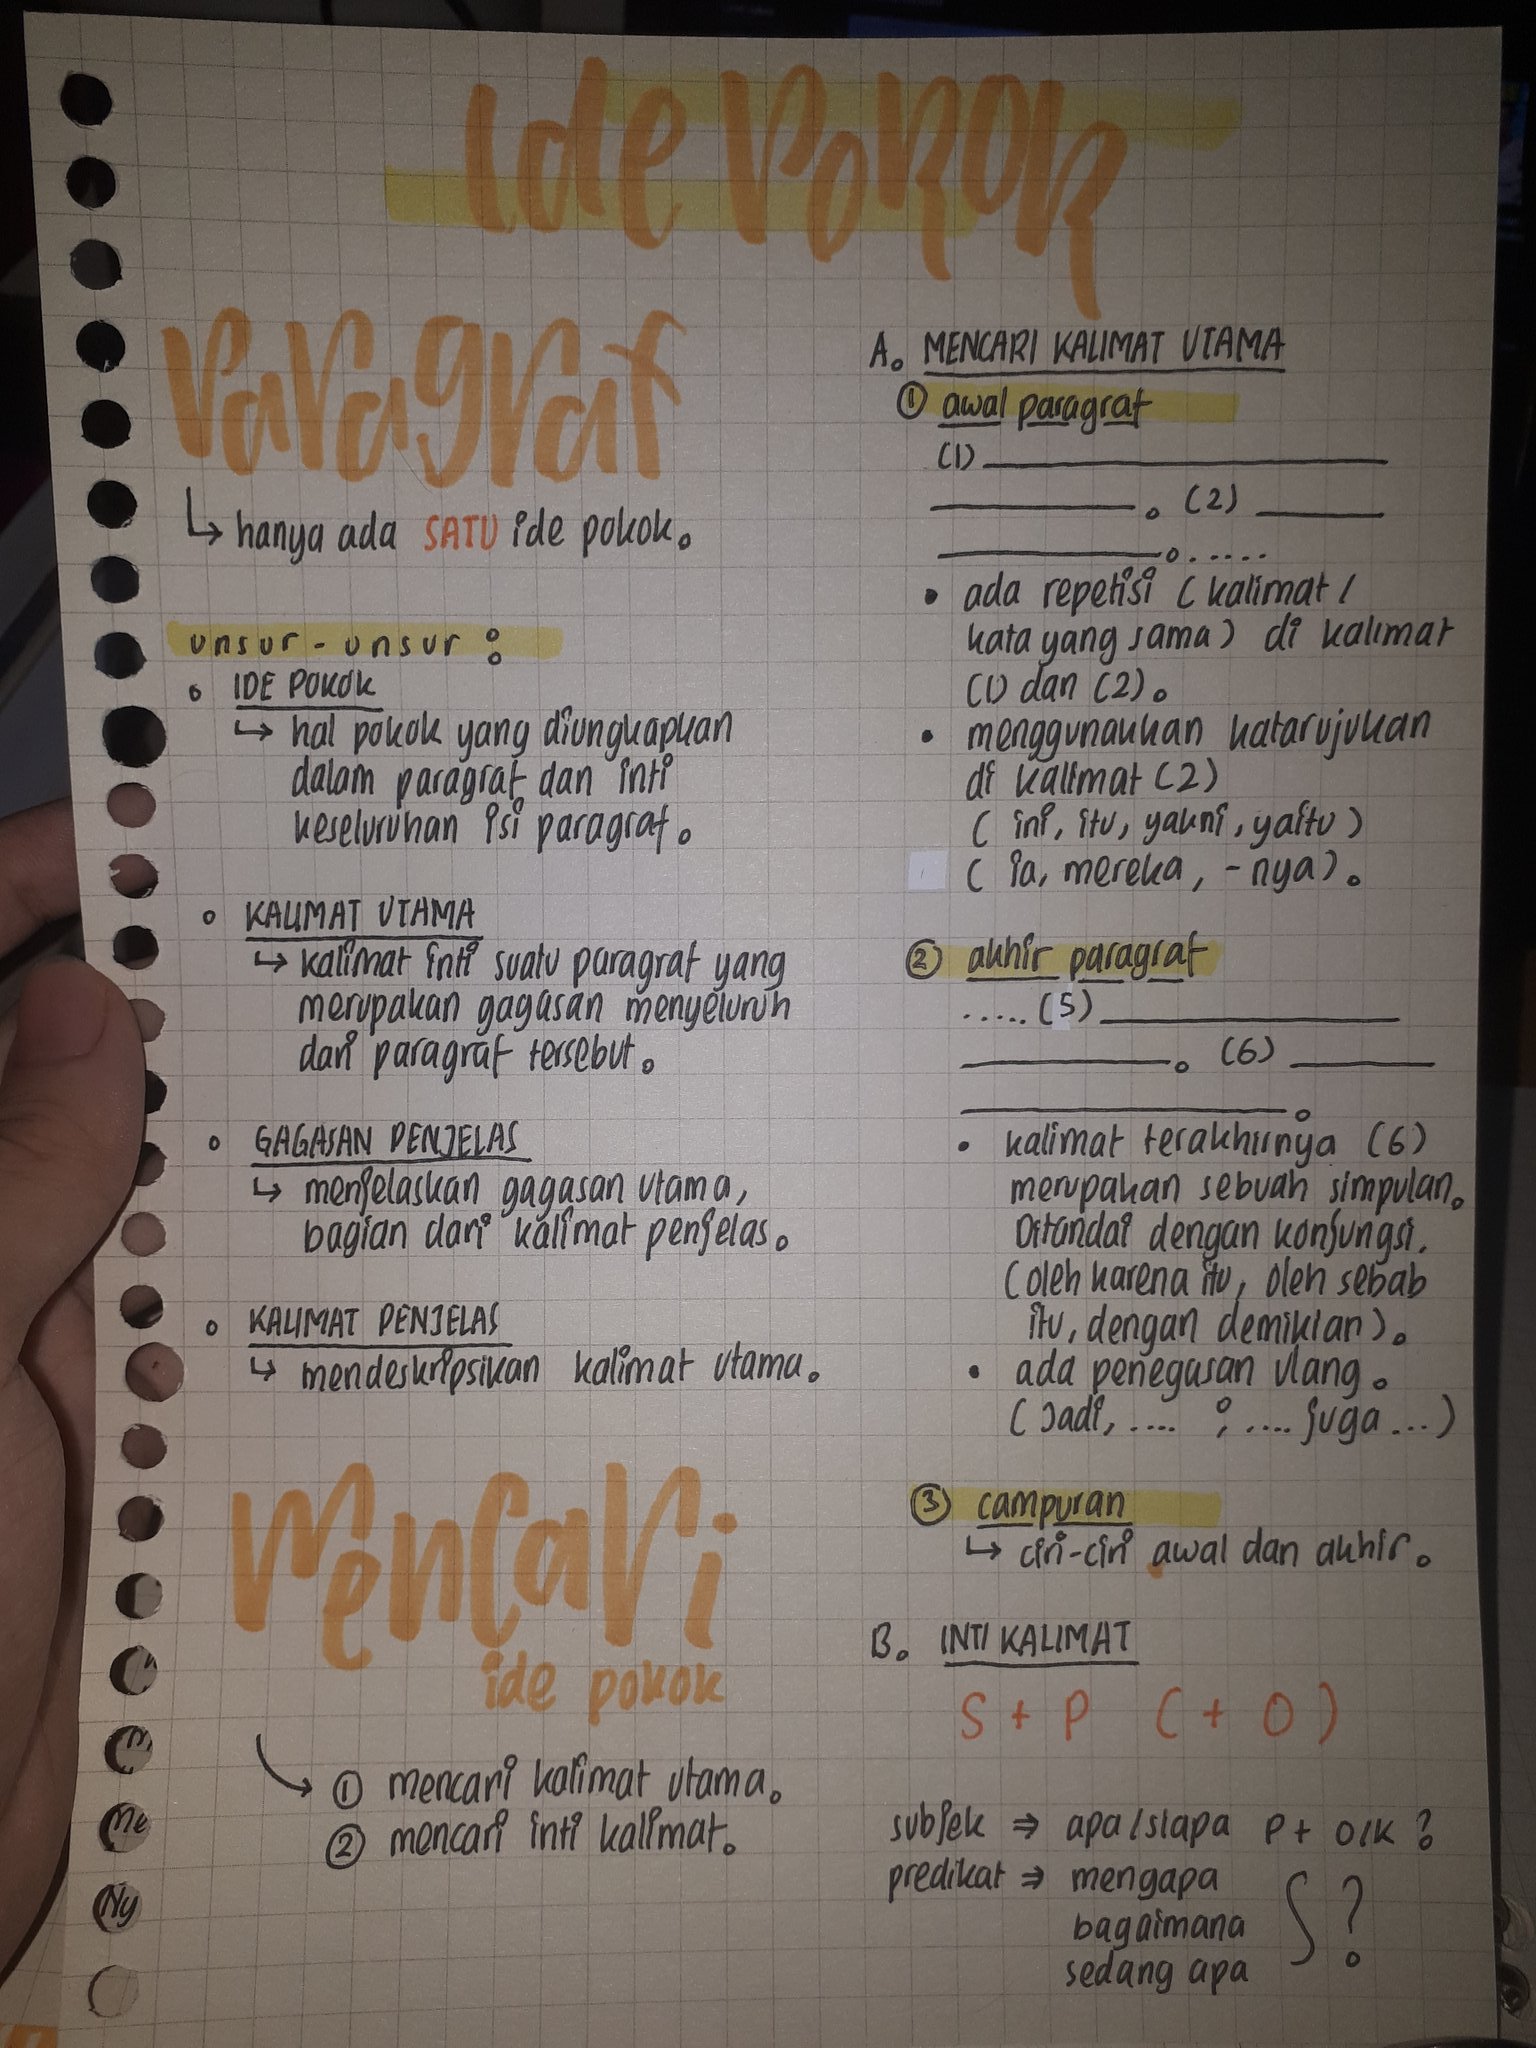 Ide Pokok
Paragraf
↳ hanya ada SATU ide pokok.
unsur-unsur :
• IDE POKOK
↳ hal pokok yang diungkapkan
dalam paragraf dan inti
keseluruhan isi paragraf.
• KALIMAT UTAMA
↳ kalimat inti suatu paragraf yang
merupakan gagasan menyeluruh
dari paragraf tersebut.
• GAGASAN PENJELAS
↳ menjelaskan gagasan utama,
bagian dari kalimat penjelas.
• KALIMAT PENJELAS
↳ mendeskripsikan kalimat utama.
Mencari
ide pokok
① mencari kalimat utama.
② mencari inti kalimat.
A. MENCARI KALIMAT UTAMA
① awal paragraf
(1) ____________
____________. (2) ______
____________. .....
• ada repetisi (kalimat/
kata yang sama) di kalimat
(1) dan (2).
• menggunakan katarujukan
di kalimat (2)
( ini, itu, yakni, yaitu )
( ia, mereka, -nya).
② akhir paragraf
..... (5) ____________
____________. (6) ______
____________.
• kalimat terakhirnya (6)
merupakan sebuah simpulan.
Ditandai dengan konjungsi.
(oleh karena itu, oleh sebab
itu, dengan demikian).
• ada penegasan ulang.
( Jadi, .... ; .... juga ... )
③ campuran
↳ ciri-ciri awal dan akhir.
B. INTI KALIMAT
S + P ( + O )
subjek ⇒ apa/siapa P + O/K ?
predikat ⇒ mengapa
bagaimana S ?
sedang apa
M
Me
Ny